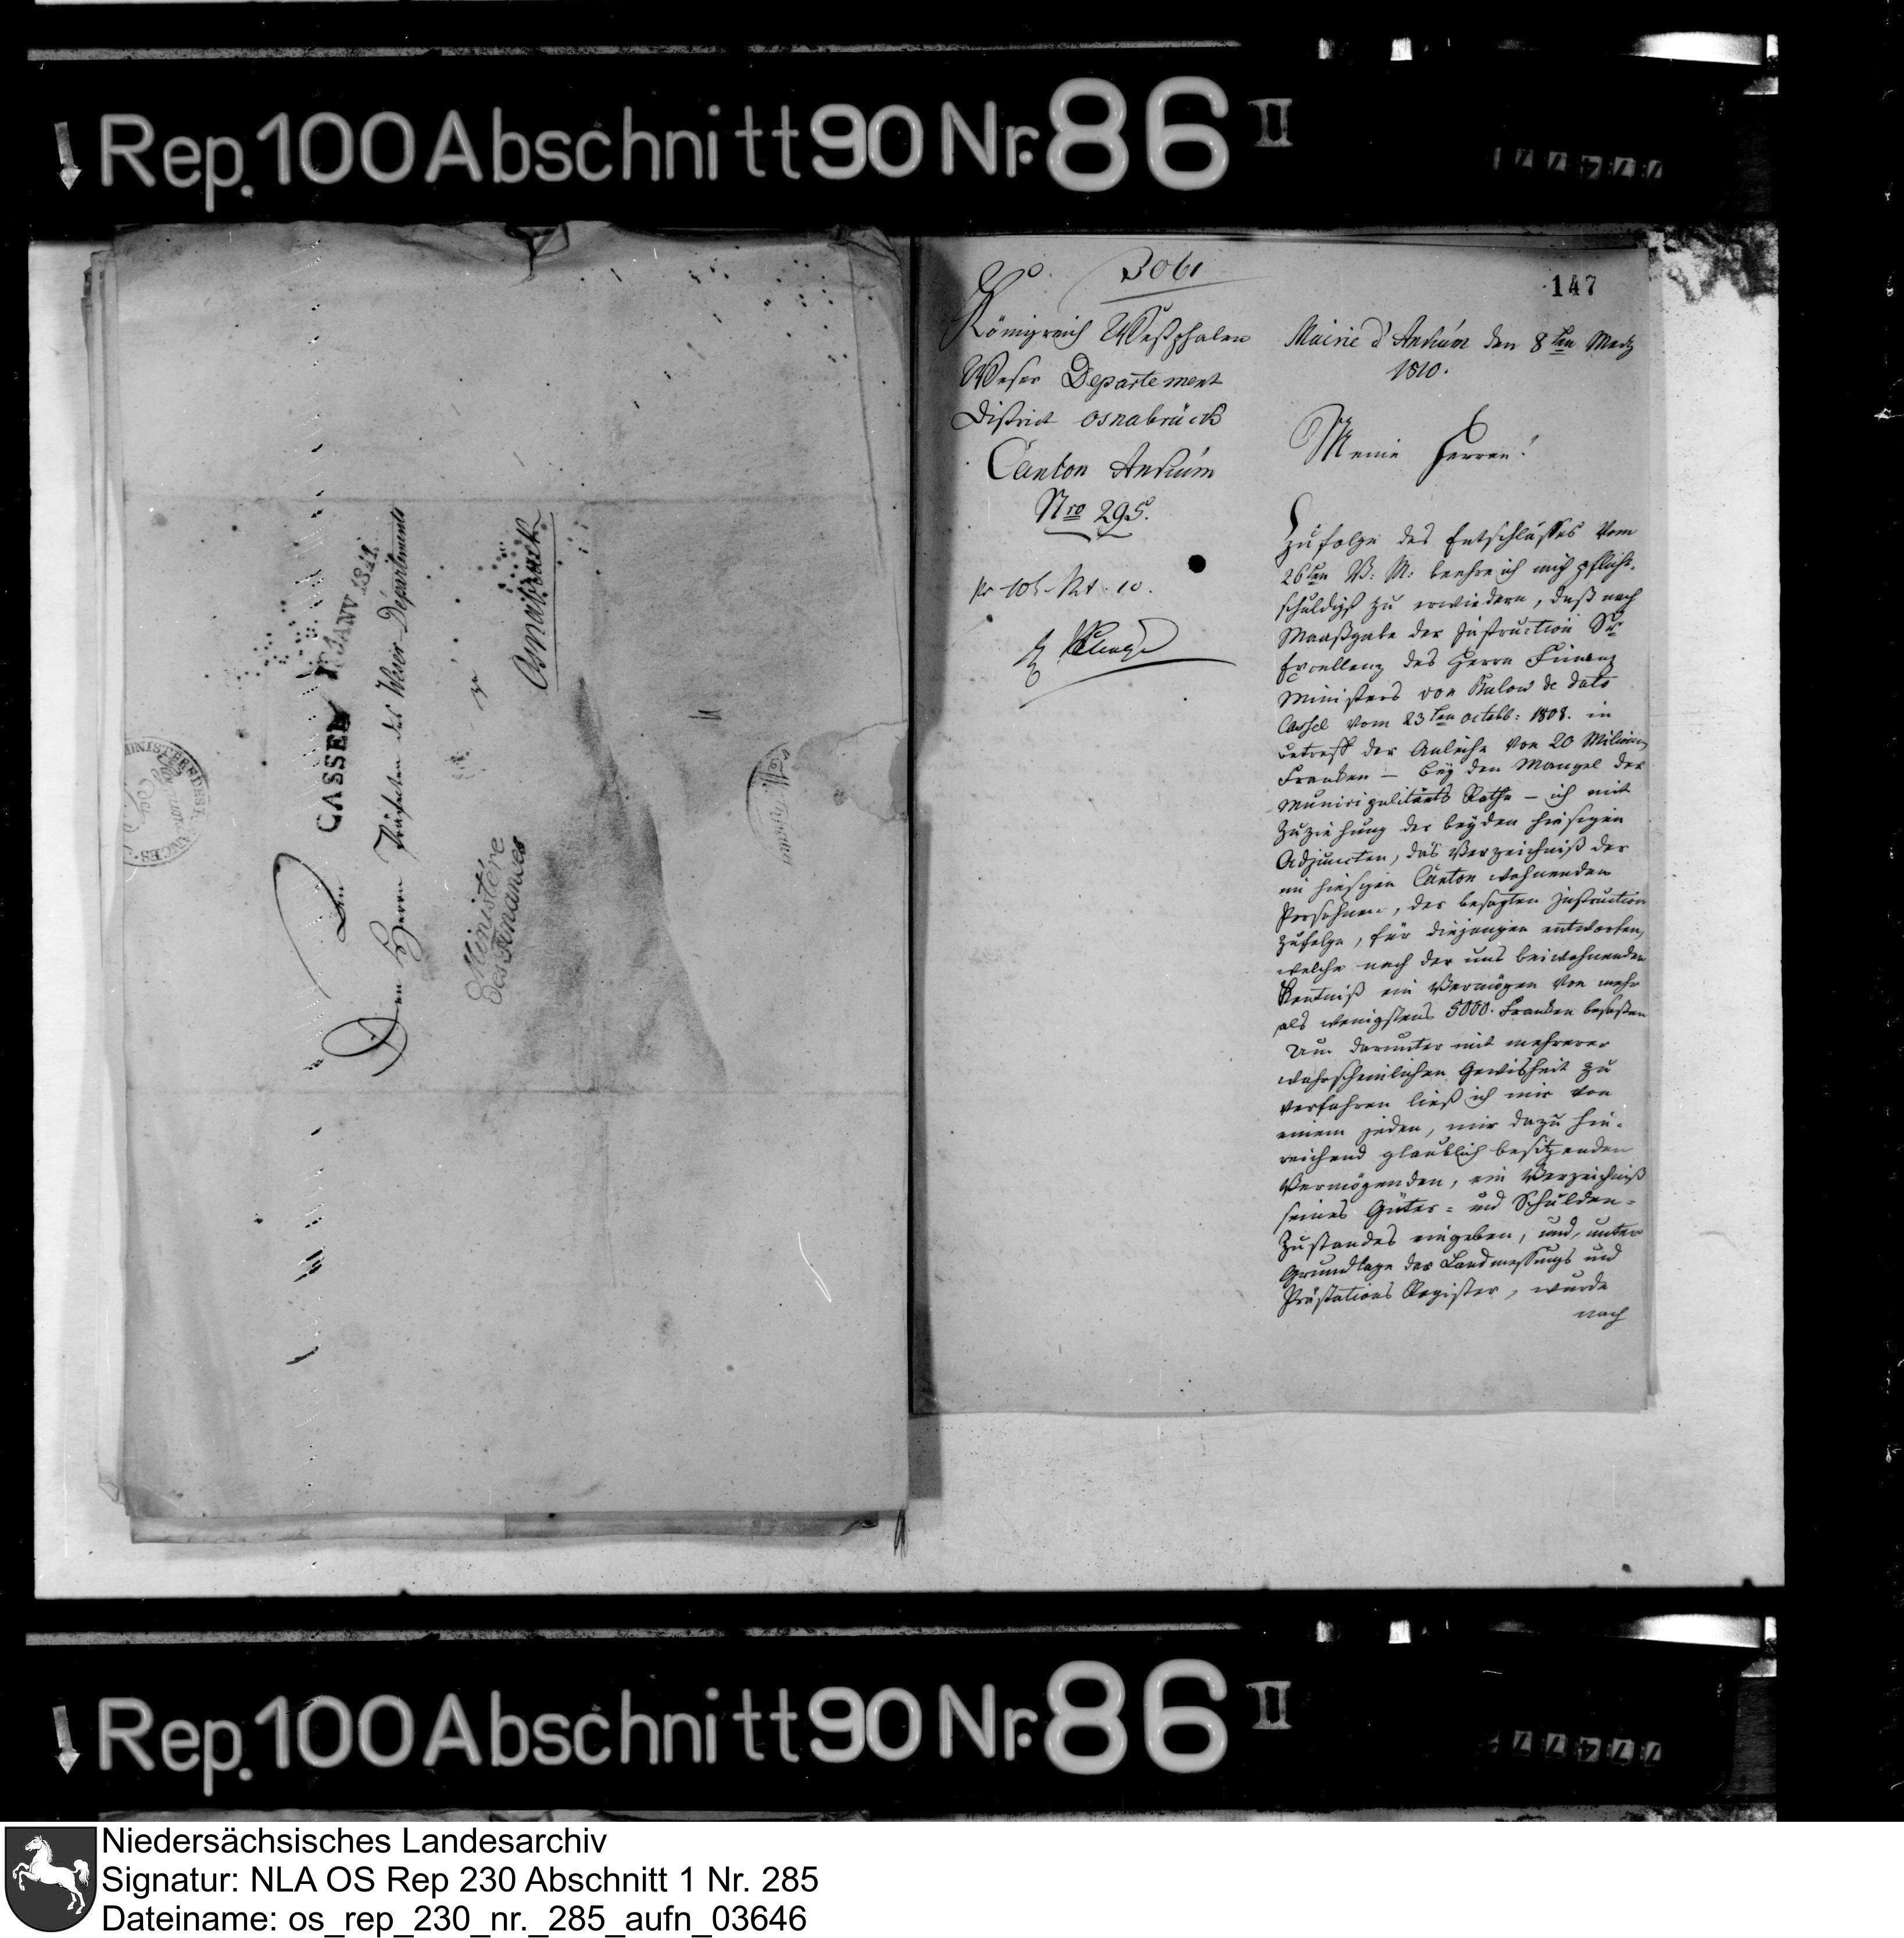 Rep. 100 Abschnitt 90 Nr. 86 II
CASSEL
JANV 1811.
An
Den Herrn Präfecten des Weser-Departements
zu
Osnabrück
Ministère
des Finances
3061
147
Königreich Westphalen
Weser Departement
District Osnabrück
Canton Ankum
Nro 295.
Mairie d'Ankum den 8ten Merz
1810.
Meine Herren!
Zufolge des Entschlußes vom
26ten v: M: beehre ich mich pflicht-
schuldigst zu erwiedern, daß nach
Maaßgabe der Instruction Sr
Excellenz des Herrn Finanz
Ministers von Bulow de dato
Cassel vom 23ten octobb: 1808. in
betreff der Anleihe von 20 Milionen
Franken – bey den Mangel der
Municipalitäts Räthe – ich mit
Zuziehung der beyden hiesigen
Adjuncten, das Verzeichniß der
im hiesigen Canton wohnenden
Persohnen, der besagten Instruction
zufolge, für diejenigen entworfen,
welche nach der uns beiwohnenden
Kentniß ein Vermögen von mehr
als wenigstens 5000. Franken besaßen
Um darunter mit mehrerer
wahrscheinlichen Gewisheit zu
verfahren ließ ich mir von
einem jeden, mir dazu hin-
reichend glaublich besitzenden
Vermögenden, ein Verzeichniß
seines Güter- und Schulden-
Zustandes eingeben, und, unter
Grundlage der Landmeßungs und
Prästations Register, wurde
nach
Rep. 100 Abschnitt 90 Nr. 86 II
Niedersächsisches Landesarchiv
Signatur: NLA OS Rep 230 Abschnitt 1 Nr. 285
Dateiname: os_rep_230_nr._285_aufn_03646